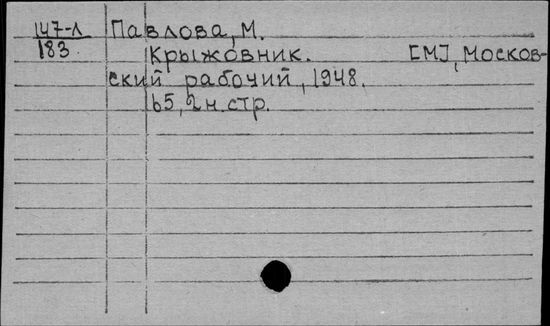 147-Л Павлова, М.
183 Крыжовник. [М], Москов-
ский рабочий, 1948.
65, 2 н. стр.